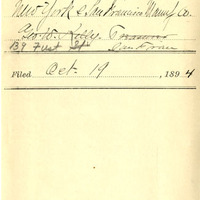 New York & San Francisco Manuf. Co.
Geo. W. Kelly,
139 First St San Fran
Filed Oct. 19, 1894